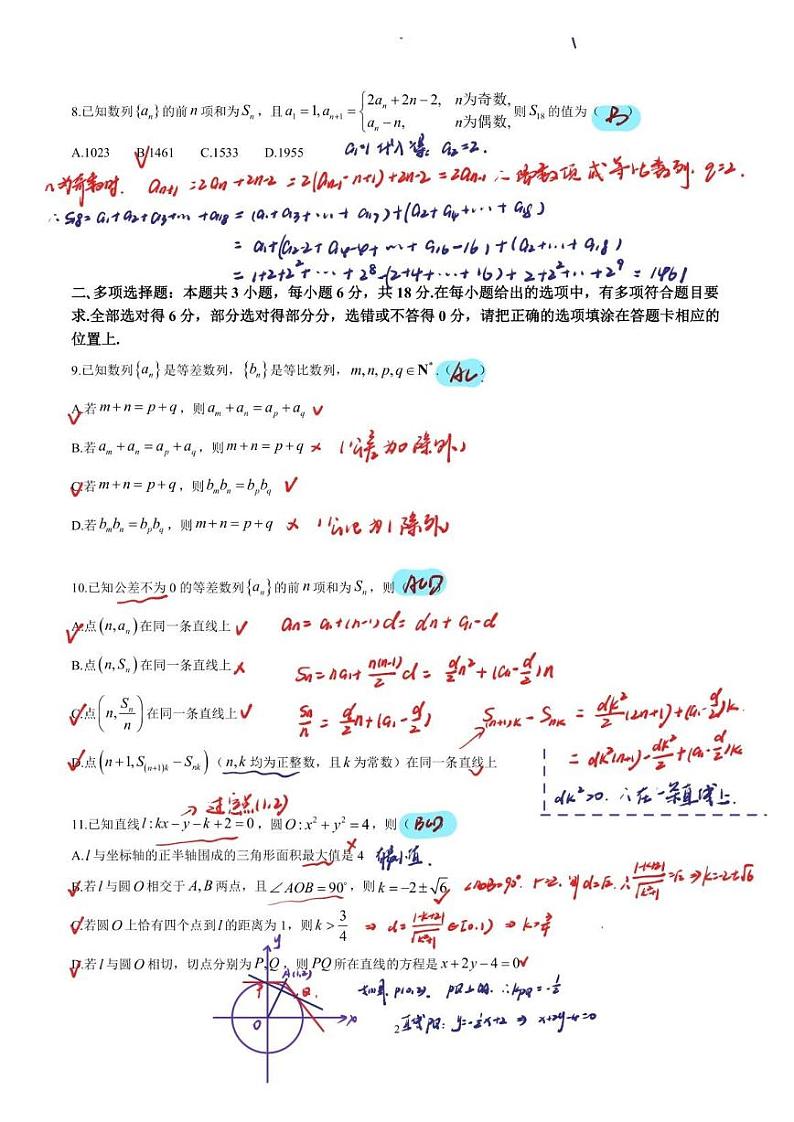 8.已知数列{aₙ}的前n项和为Sₙ，且a₁=1,aₙ₊₁={2aₙ+2n−2, n为奇数, aₙ−n, n为偶数, 则S₁₈的值为（B）
A.1023 B.1461 C.1533 D.1955 a₁=1代入得: a₂=2.
n为奇数时. aₙ₊₁=2aₙ+2n-2=2(aₙ₋₁-n+1)+2n-2=2aₙ₋₁ ∴偶数项成等比数列. q=2.
∴S₁₈=a₁+a₂+a₃+…+a₁₈=(a₁+a₃+…+a₁₇)+(a₂+a₄+…+a₁₈)
=a₁+(a₂-2+a₄-4+…+a₁₆-16)+(a₂+…+a₁₈)
=1+2+2²+…+2⁸-(2+4+…+16)+2+2²+…+2⁹=1461
二、多项选择题：本题共3小题，每小题6分，共18分.在每小题给出的选项中，有多项符合题目要
求.全部选对得6分，部分选对得部分分，选错或不答得0分，请把正确的选项填涂在答题卡相应的
位置上.
9.已知数列{aₙ}是等差数列，{bₙ}是等比数列，m,n,p,q∈N*.（AC）
A.若m+n=p+q，则aₘ+aₙ=aₚ+a_q ✓
B.若aₘ+aₙ=aₚ+a_q，则m+n=p+q × (公差为0除外)
C.若m+n=p+q，则bₘbₙ=bₚb_q ✓
D.若bₘbₙ=bₚb_q，则m+n=p+q × (公比为1除外)
10.已知公差不为0的等差数列{aₙ}的前n项和为Sₙ，则（ACD）
A.点(n,aₙ)在同一条直线上 ✓ aₙ=a₁+(n-1)d=dn+a₁-d
B.点(n,Sₙ)在同一条直线上 × Sₙ=na₁+n(n-1)/2 d=d/2 n²+(a₁-d/2)n
C.点(n,Sₙ/n)在同一条直线上 ✓ Sₙ/n=d/2 n+(a₁-d/2) S₍ₙ₊₁₎ₖ-Sₙₖ=dk²/2(2n+1)+(a₁-d/2)k.
=dk²(n+1)-dk²/2+(a₁-d/2)k
D.点(n+1,S₍ₙ₊₁₎ₖ−Sₙₖ)（n,k均为正整数，且k为常数）在同一条直线上
dk²>0. ∴在一条直线上.
→过定点(1,2)
11.已知直线l:kx−y−k+2=0，圆O:x²+y²=4，则（BCD）
A.l与坐标轴的正半轴围成的三角形面积最大值是4 × 有最小值.
B.若l与圆O相交于A,B两点，且∠AOB=90°，则k=−2±√6 ✓ ∠AOB=90°. r=2. 则d=√2. ∴|-k+2|/√(k²+1)=√2 ⇒k=-2±√6
C.若圆O上恰有四个点到l的距离为1，则k>3/4 ⇒ d=|-k+2|/√(k²+1)∈[0,1) ⇒ k>3/4
D.若l与圆O相切，切点分别为P,Q，则PQ所在直线的方程是x+2y−4=0 ✓
y A(1,2) P Q O x
P(0,2). PQ⊥OA. ∴kPQ=-1/2
直线PQ: y=-1/2x+2 ⇒ x+2y-4=0
2